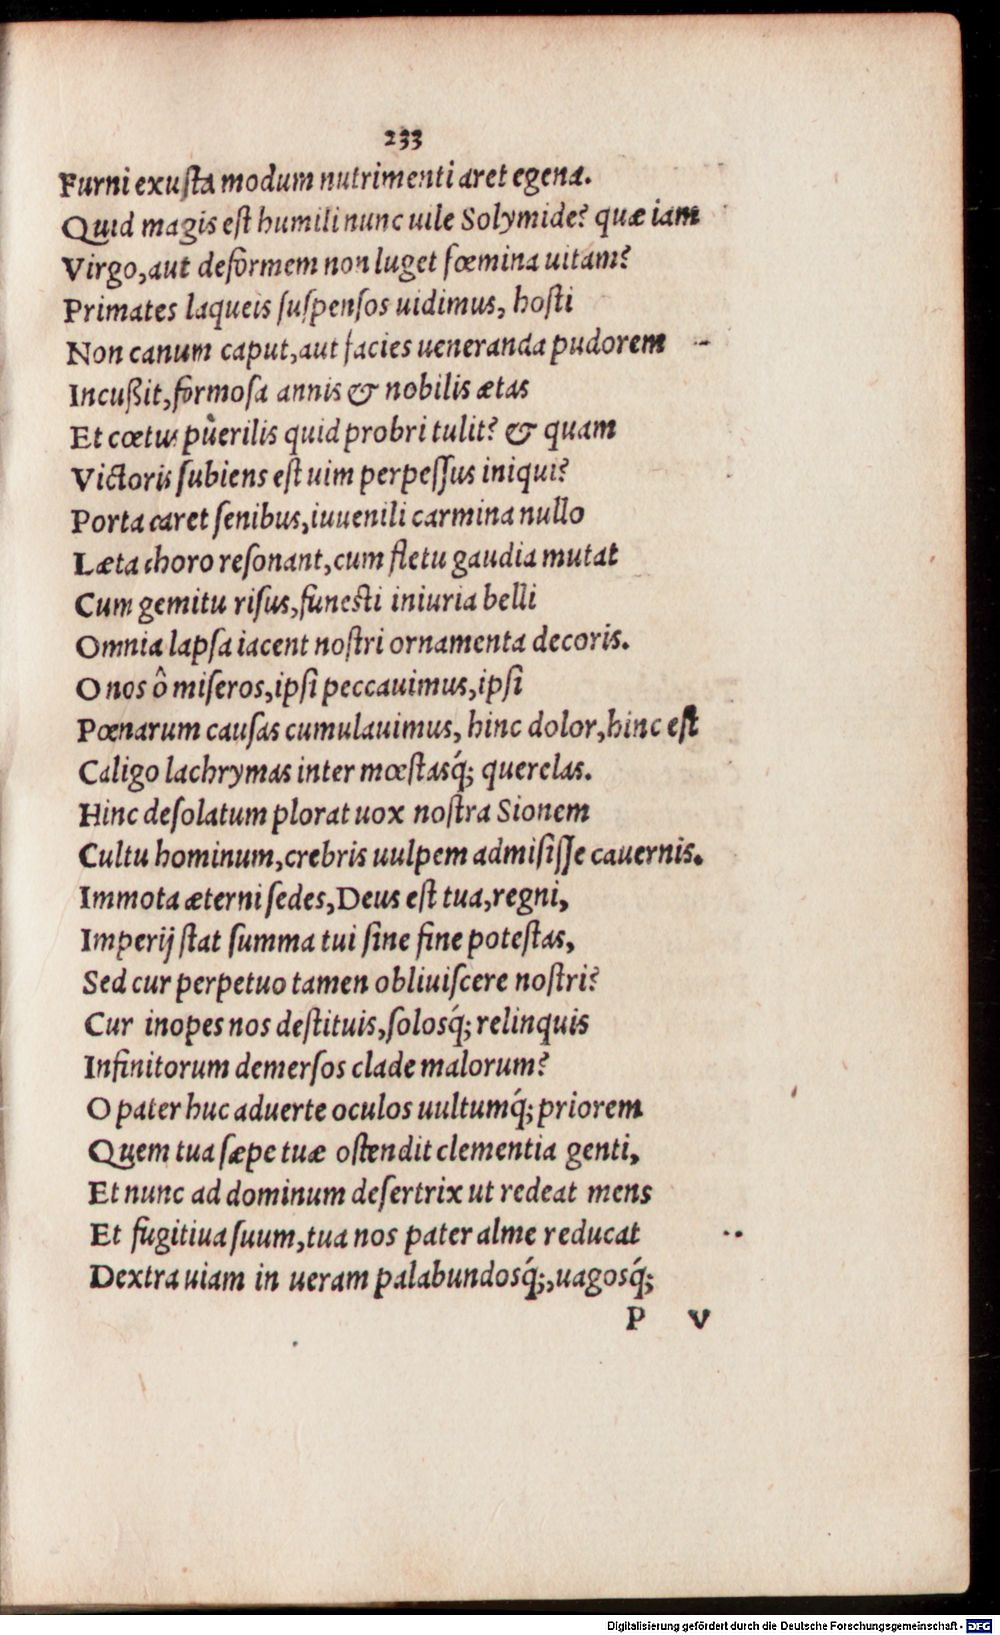 233
Furni exusta modum nutrimenti aret egena.
Quid magis est humili nunc uile Solymide? quæ iam
Virgo, aut deformem non luget fœmina uitam?
Primates laqueis suspensos uidimus, hosti
Non canum caput, aut facies ueneranda pudorem
Incußit, formosa annis & nobilis ætas
Et cœtus puerilis quid probri tulit? & quam
Victoris subiens est uim perpessus iniqui?
Porta caret senibus, iuuenili carmina nullo
Læta choro resonant, cum fletu gaudia mutat
Cum gemitu risus, funesti iniuria belli
Omnia lapsa iacent nostri ornamenta decoris.
O nos ô miseros, ipsi peccauimus, ipsi
Pœnarum causas cumulauimus, hinc dolor, hinc est
Caligo lachrymas inter mœstasq́; querelas.
Hinc desolatum plorat uox nostra Sionem
Cultu hominum, crebris uulpem admisisse cauernis.
Immota æterni sedes, Deus est tua, regni,
Imperij stat summa tui sine fine potestas,
Sed cur perpetuo tamen obliuiscere nostri?
Cur inopes nos destituis, solosq́; relinquis
Infinitorum demersos clade malorum?
O pater huc aduerte oculos uultumq́; priorem
Quem tua sæpe tuæ ostendit clementia genti,
Et nunc ad dominum desertrix ut redeat mens
Et fugitiua suum, tua nos pater alme reducat
Dextra uiam in ueram palabundosq́;, uagosq́;
P V
Digitalisierung gefördert durch die Deutsche Forschungsgemeinschaft - DFG